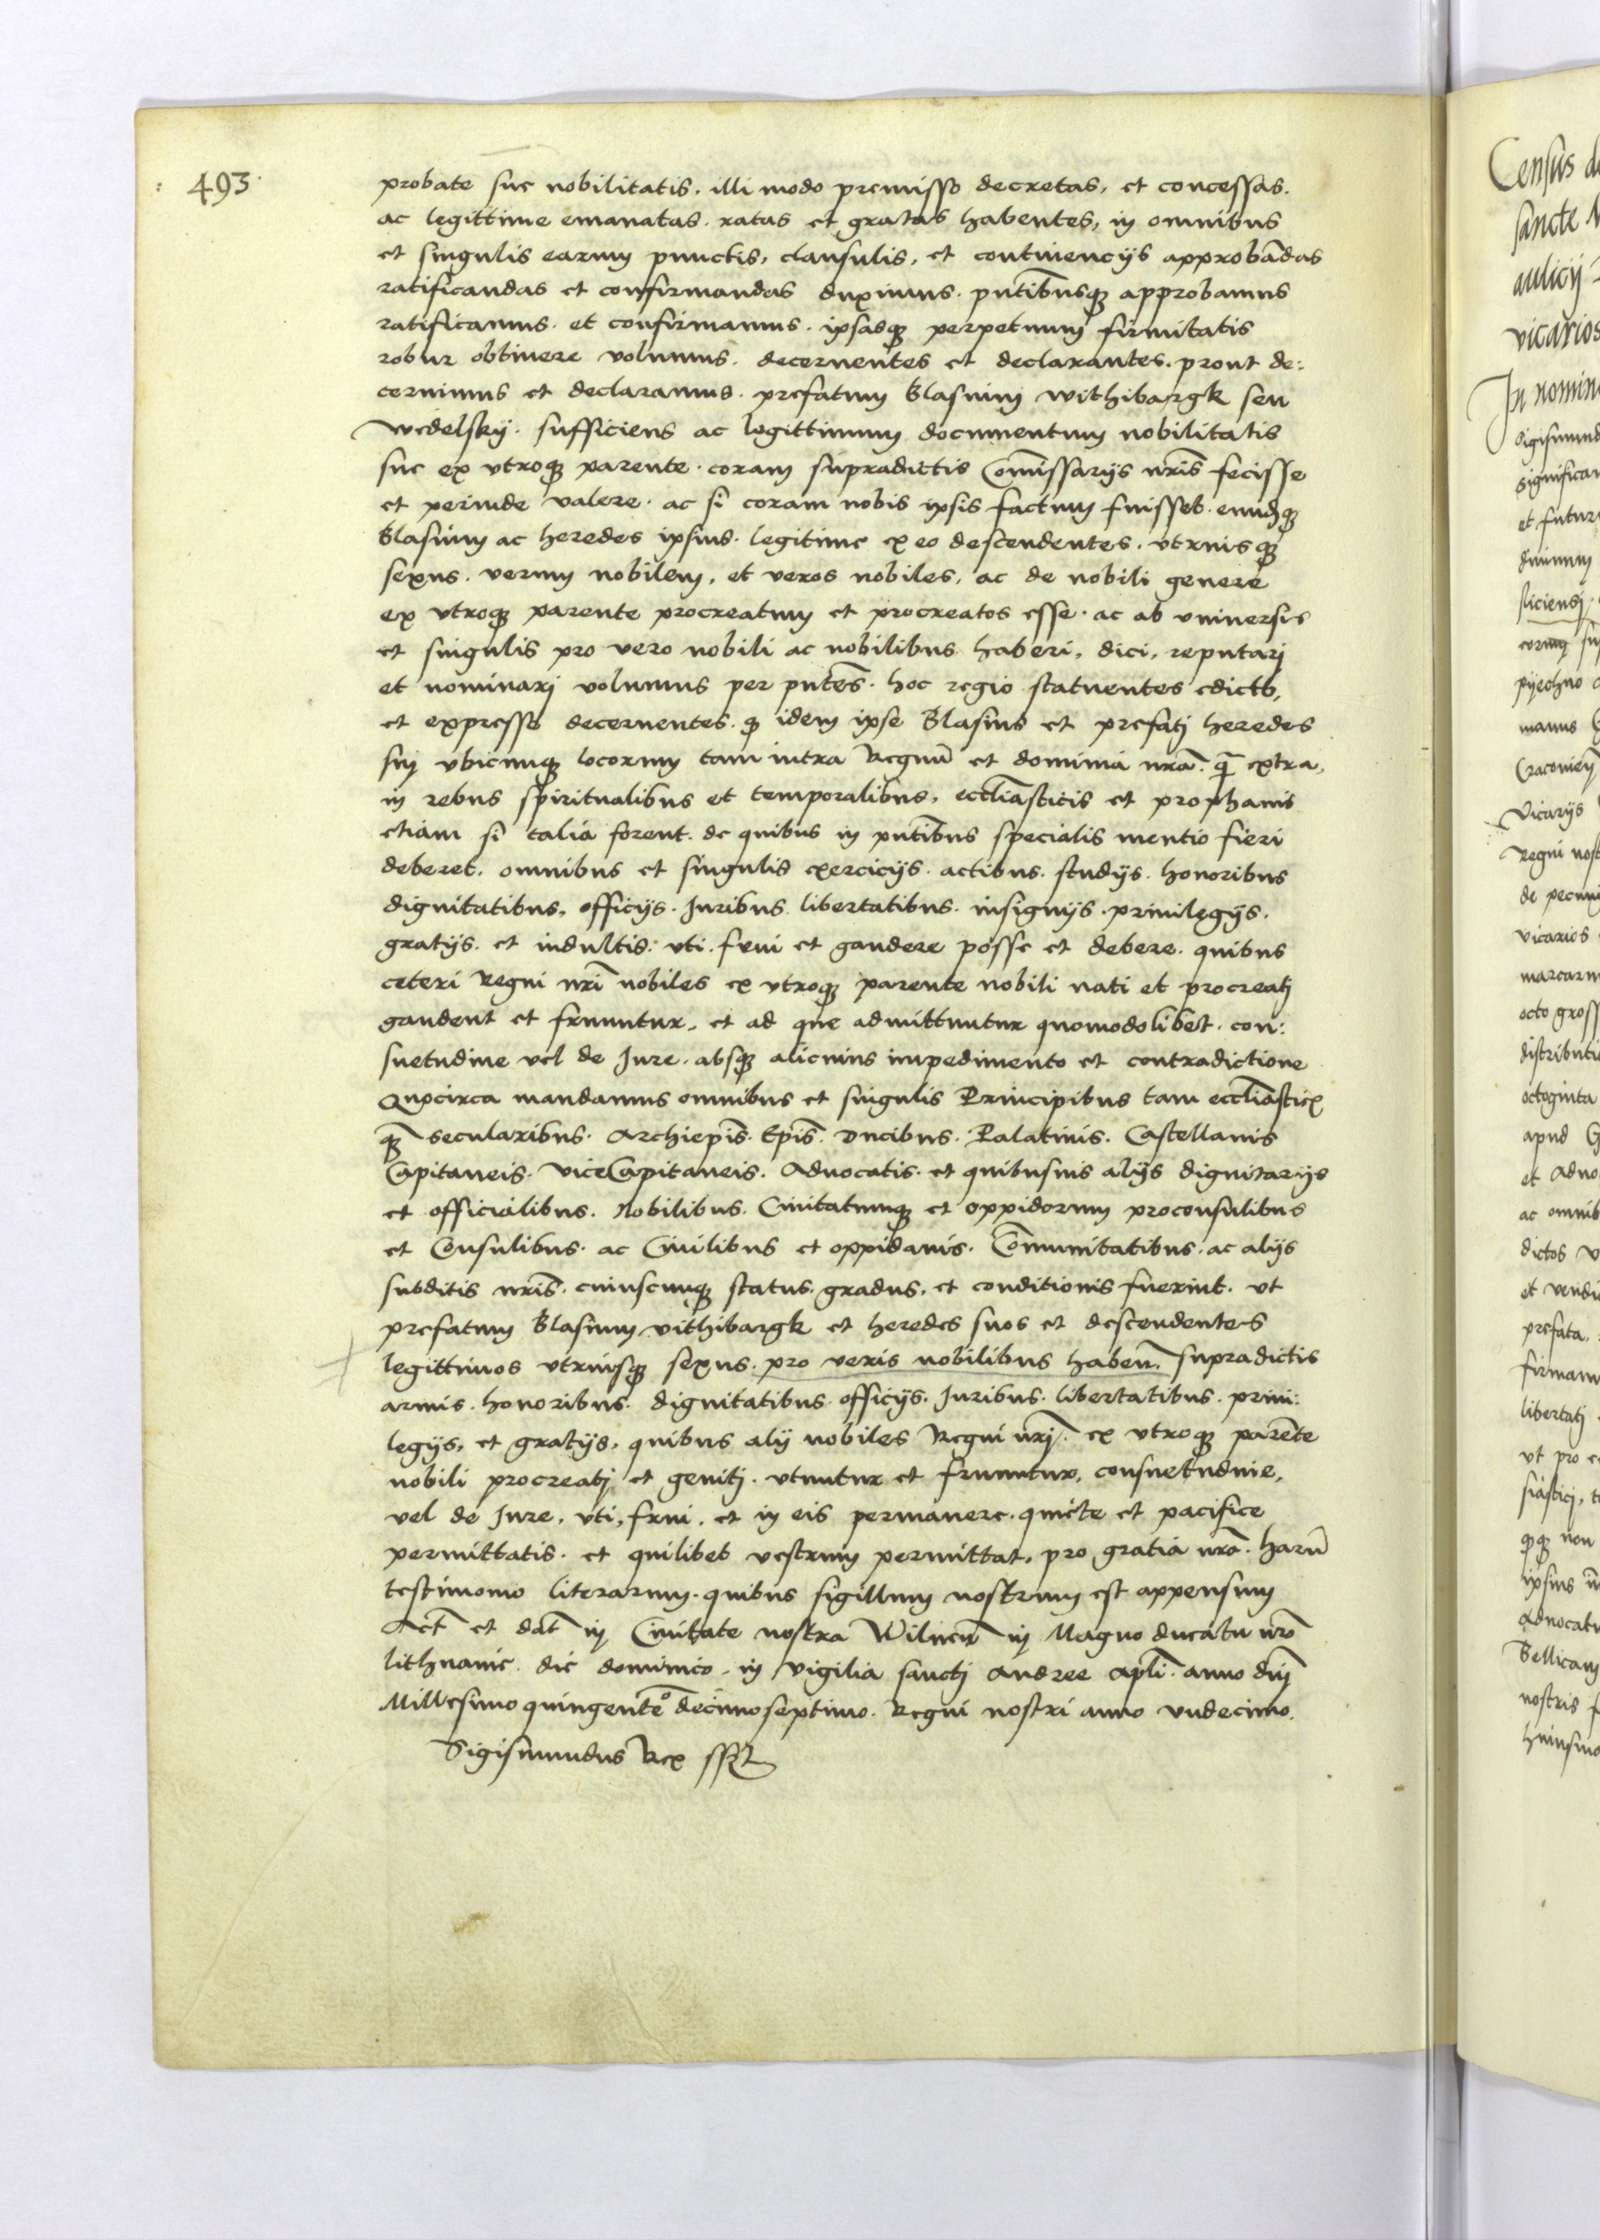 : 493·
probate sue nobilitatis. illi modo premisso decretas, et concessas.
ac legittime emanatas. ratas et gratas habentes, in omnibus
et singulis earum punctis, clausulis, et continencijs approbādas
ratificandas et confirmandas duximus. pn̄tibusq3 approbamus
ratificamus. et confirmamus. ipsasq3 perpetuum firmitatis
robur obtinere volumus. decernentes et declarantes. prout de:
cernimus et declaramus. prefatum Blasium withibargk seu
wedelskij. sufficiens ac legittimum documentum nobilitatis
sue ex vtroq3 parente. coram supradictis Com̄issarijs nr̄is fecisse
et perinde valere. ac si coram nobis ipsis factum fuisset. eundq3
Blasium ac heredes ipsius. legitime ex eo descendentes. vtriusq3
sexus. verum nobilem, et veros nobiles, ac de nobili genere
ex vtroq3 parente procreatum et procreatos esse. ac ab vniversis
et singulis pro vero nobili ac nobilibus haberi, dici, reputarj
et nominarj volumus per pn̄tes. hoc regio statuentes edicto,
et expresse decernentes. q̄ idem ipse Blasius et prefatj heredes
sui vbicunq3 locorum tam intra Regnū et dominia nr̄a. q̄ extra,
in rebus spiritualibus et temporalibus, eccliāsticis et prophanis
etiam si talia forent. de quibus in pn̄tibus specialis mentio fieri
deberet. omnibus et singulis exercicijs. actibus. studijs. honoribus
dignitatibus, officijs. Juribus. libertatibus. insignijs. priuilegijs.
gratijs. et indultis: vti. frui et gaudere posse et debere. quibus
ceteri Regni nr̄i nobiles ex vtroq3 parente nobili nati et procreatj
gaudent et fruuntur, et ad que admittuntur quomodolibet. con:
suetudine vel de Jure. absq3 alicuius impedimento et contradictione
Quocirca mandamus omnibus et singulis Principibus tam eccliāsticx
q̄3 secularibus. Archiepīs. Epīs. Ducibus. Palatinis. Castellanis
Capitaneis. ViceCapitaneis. Aduocatis. et quibusuis alijs dignitarijs
et officialibus. Nobilibus. Ciuitatumq3 et oppidorum proconsulibus
et Consulibus. ac Ciuilibus et oppidanis. Com̄unitatibus. ac alijs
subditis nr̄is. cuiuscunq3 status. gradus, et conditionis fuerint. vt
prefatum Blasium vithibargk et heredes suos et descendentes
legittimos vtriusq3 sexus. pro veris nobilibus haben̄. supradictis
armis. honoribus. dignitatibus. officijs. Juribus. libertatibus. priui:
legijs, et gratijs, quibus alij nobiles Regni nr̄j. ex vtroq3 parente
nobili procreatj et genitj. vtuntur et fruuntur, consuetudine,
vel de Jure, vti, frui, et in eis permanere. quiete et pacifice
permittatis. et quilibet vestrum permittat, pro gratia nr̄a. harū
testimonio literarum. quibus sigillum nostrum est appensum
Act̄ et dat̄ in Ciuitate nostra Wilnen̄ in Magno ducatu nr̄o
lithuanie. die dominico. in vigilia sanctj Andree Apl̄i. anno dn̄j
Millesimo quingente͞o decimoseptimo. Regni nostri anno vndecimo.
Sigismundus Rex sspt
Census de
sancte
aulicij
vicarios
In nomine
Sigismund
significam
et futur
diuinum
eorum su
pijechno
manus
Cracouien̄
Vicarijs
Regni nost
de pecuni
vicarios
marcarum
octo gross
distributi
octoginta
apud
et Aduo
ac omnib
dictos v
et vendi
prefata.
firmam
libertatj
vt pro
siasticj,
q3 non
ipsius
Aduocatu
Bellicam
nostris
huiusmo